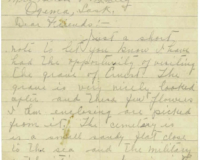 Ogema, Sask,
Dear Friends:-
Just a short
note to let you know I have
had the opportunity of visiting
the grave of
grave is very nicely looked
after and these few flowers
I am enclosing are picked
from it. The cemetery is
on a small sandy plot close
to the sea and the military